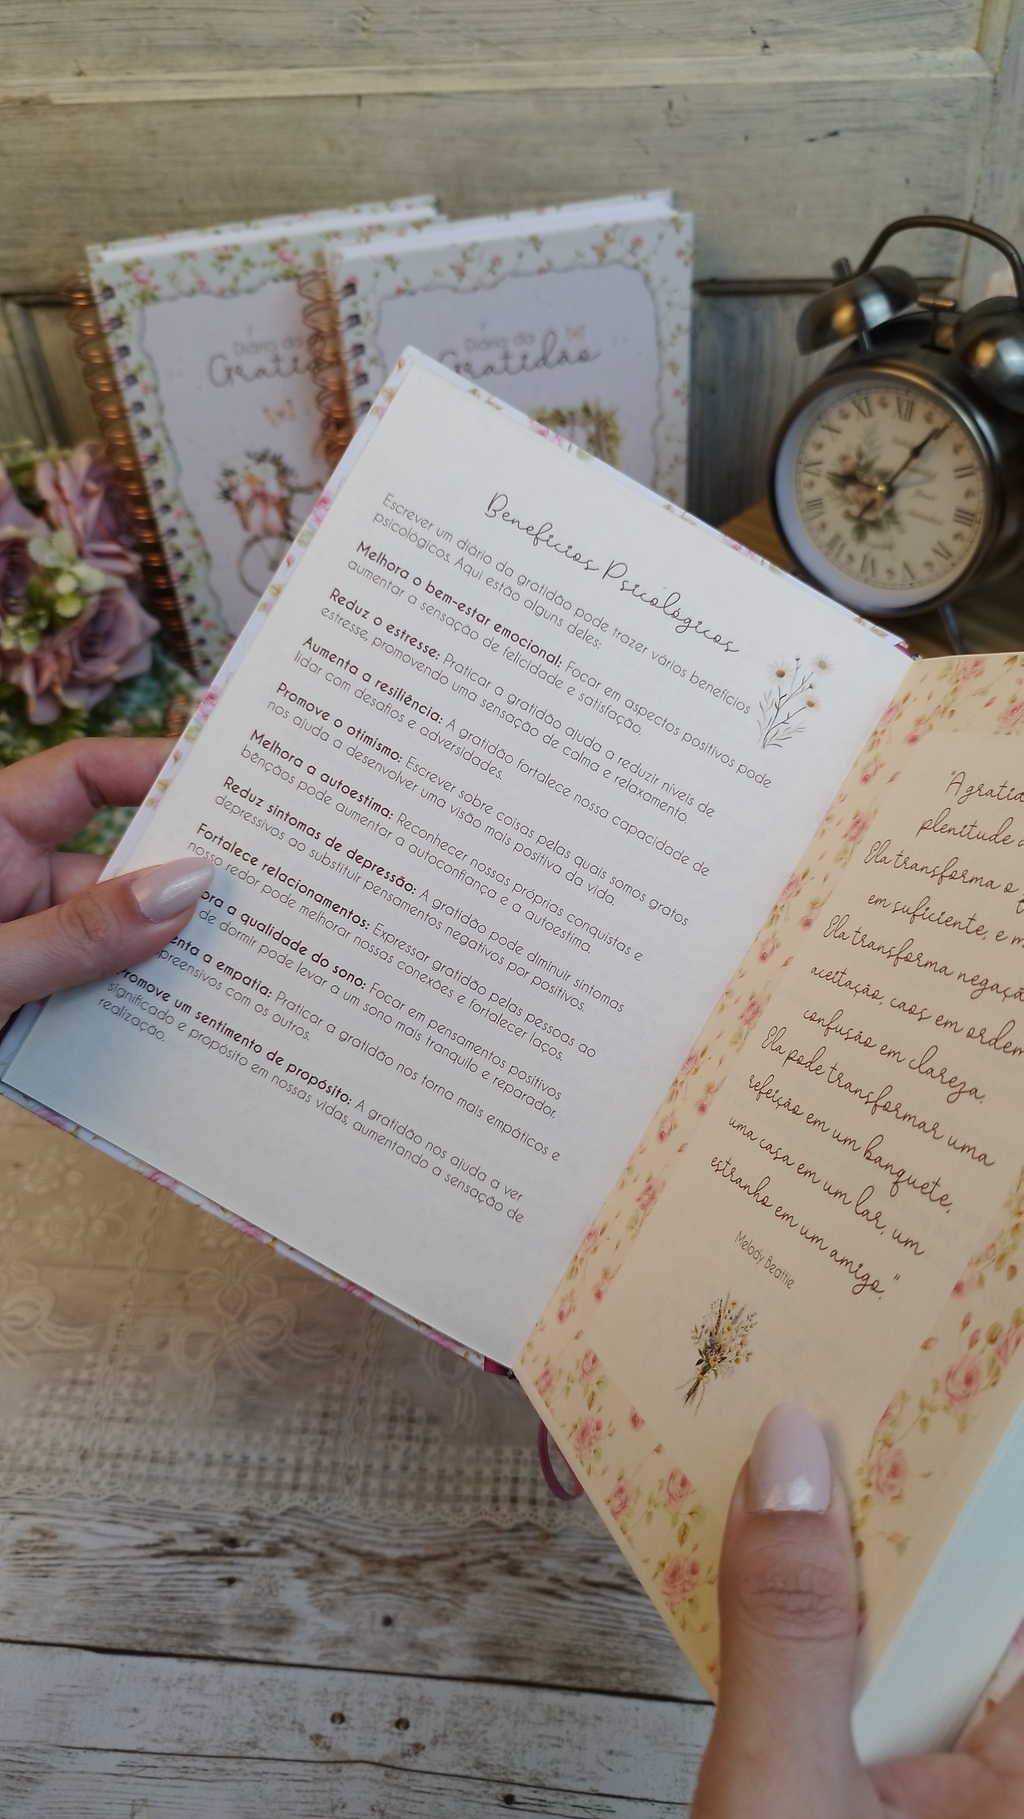 Diário da
Gratid
Diário da
Gratidão
XII
Benefícios Psicológicos
Escrever um diário da gratidão pode trazer vários benefícios
psicológicos. Aqui estão alguns deles:
Melhora o bem-estar emocional: Focar em aspectos positivos pode
aumentar a sensação de felicidade e satisfação.
Reduz o estresse: Praticar a gratidão ajuda a reduzir níveis de
estresse, promovendo uma sensação de calma e relaxamento.
Aumenta a resiliência: A gratidão fortalece nossa capacidade de
lidar com desafios e adversidades.
Promove o otimismo: Escrever sobre coisas pelas quais somos gratos
nos ajuda a desenvolver uma visão mais positiva da vida.
Melhora a autoestima: Reconhecer nossas próprias conquistas e
bênçãos pode aumentar a autoconfiança e a autoestima.
Reduz sintomas de depressão: A gratidão pode diminuir sintomas
depressivos ao substituir pensamentos negativos por positivos.
Fortalece relacionamentos: Expressar gratidão pelas pessoas ao
nosso redor pode melhorar nossas conexões e fortalecer laços.
ora a qualidade do sono: Focar em pensamentos positivos
de dormir pode levar a um sono mais tranquilo e reparador.
enta a empatia: Praticar a gratidão nos torna mais empáticos e
preensivos com os outros.
Promove um sentimento de propósito: A gratidão nos ajuda a ver
significado e propósito em nossas vidas, aumentando a sensação de
realização.
"A gratid
plenitude d
Ela transforma o
em suficiente, e m
Ela transforma negaçã
aceitação, caos em ordem
confusão em clareza.
Ela pode transformar uma
refeição em um banquete,
uma casa em um lar, um
estranho em um amigo."
Melody Beattie